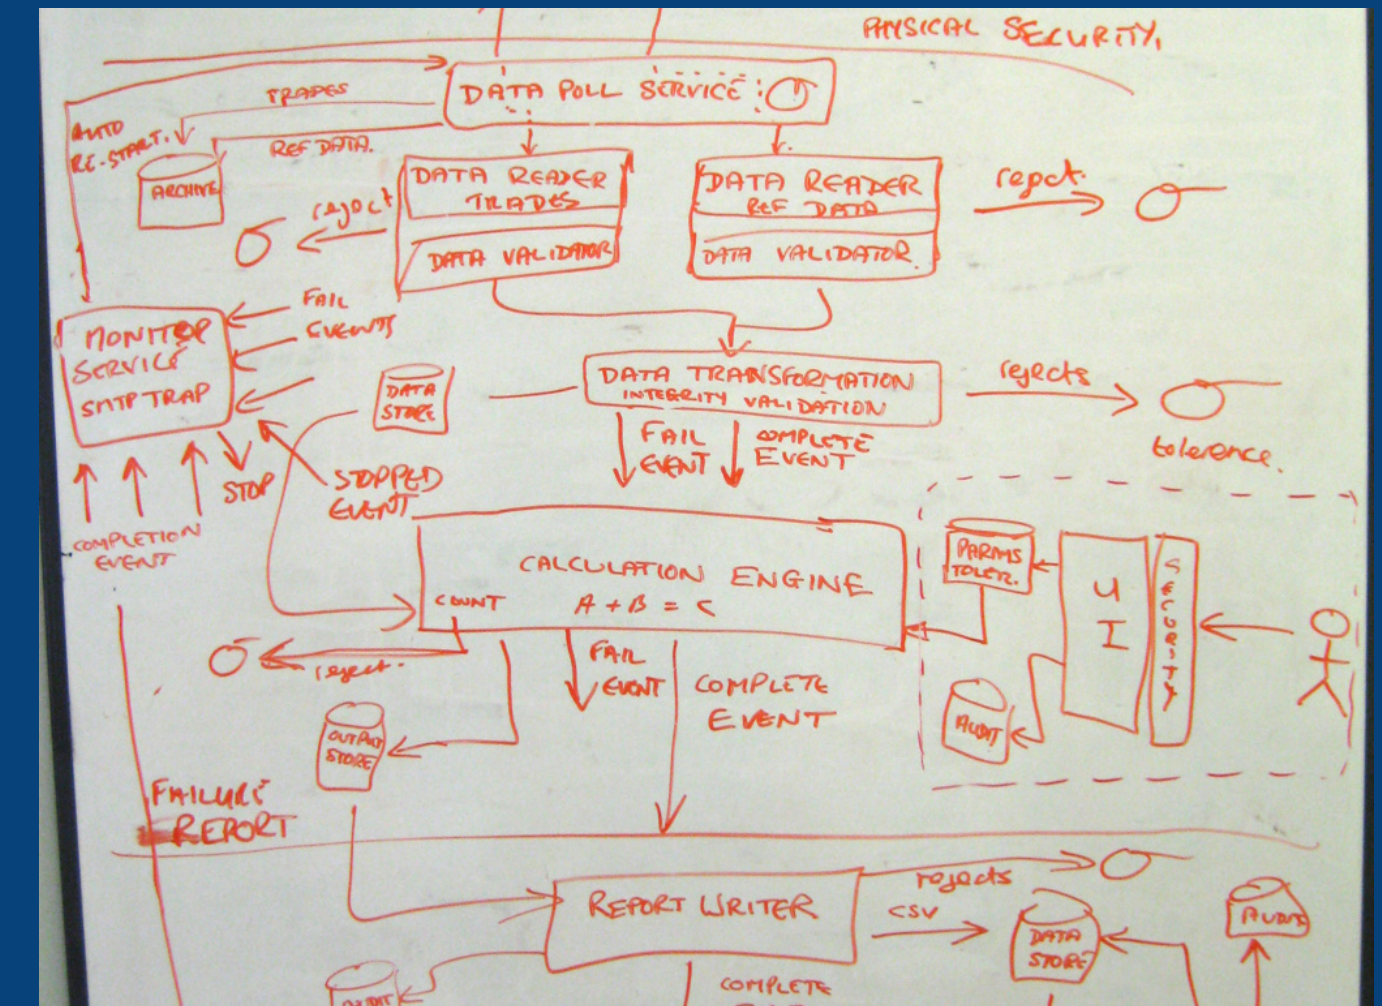 PHYSICAL SECURITY,
TRADES
DATA POLL SERVICE
AUTO
RE-START.
REF DATA.
ARCHIVE
DATA READER
TRADES
DATA VALIDATOR
reject
DATA READER
REF DATA
DATA VALIDATOR.
reject.
FAIL
EVENTS
MONITOR
SERVICE
SMTP TRAP
DATA
STORE
DATA TRANSFORMATION
INTEGRITY VALIDATION
rejects
tolerence.
FAIL
EVENT
COMPLETE
EVENT
STOP
STOPPED
EVENT
COMPLETION
EVENT
CALCULATION ENGINE
COUNT
A + B = C
PARAMS
TOLER.
UI
SECURITY
AUDIT
reject.
FAIL
EVENT
COMPLETE
EVENT
OUTPUT
STORE
FAILURE
REPORT
REPORT WRITER
rejects
CSV
DATA
STORE
AUDIT
AUDIT
COMPLETE